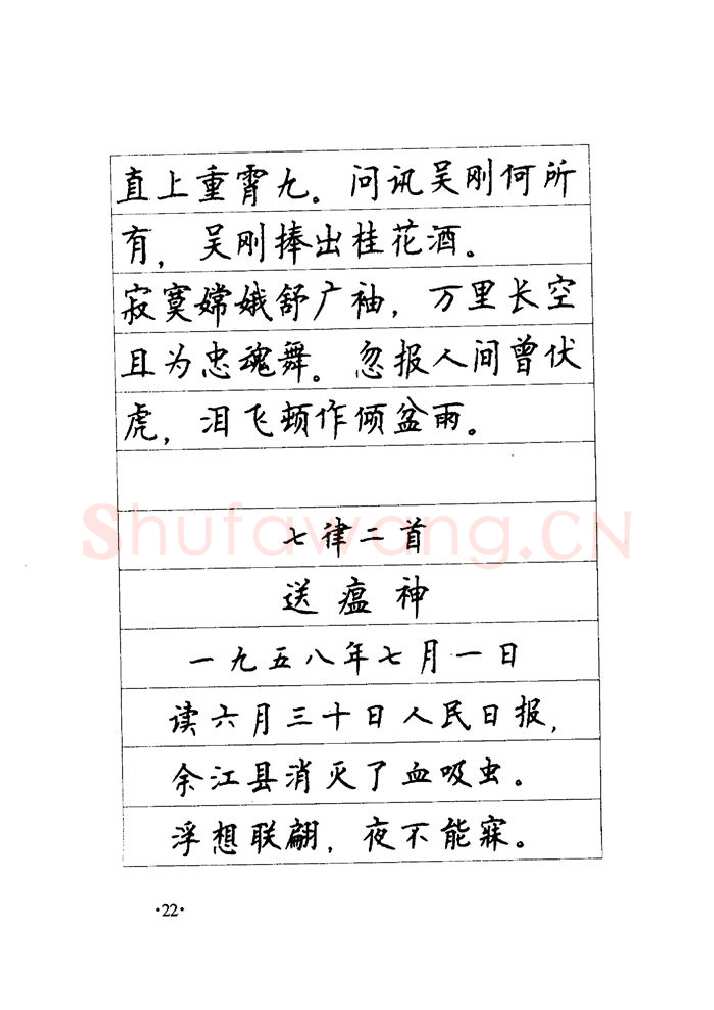 直上重霄九。问讯吴刚何所
有，吴刚捧出桂花酒。
寂寞嫦娥舒广袖，万里长空
且为忠魂舞。忽报人间曾伏
虎，泪飞顿作倾盆雨。
Shufawang.CN
七律二首
送瘟神
一九五八年七月一日
读六月三十日人民日报，
余江县消灭了血吸虫。
浮想联翩，夜不能寐。
·22·